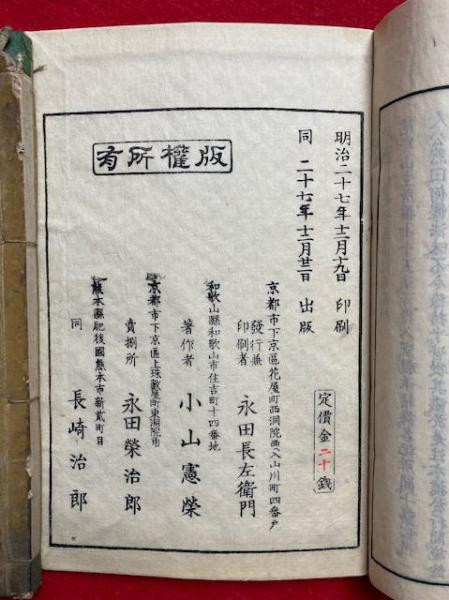 明治二十七年十二月十九日印刷
同二十七年十二月廿二日出版
定價金二十錢
京都市下京區花屋町西洞院西入山川町四番戸
發行兼印刷者 永田長左衛門
和歌山縣和歌山市住吉町十四番地
著作者 小山憲榮
京都市下京區上珠數屋町東洞院
賣捌所 永田榮治郎
熊本縣肥後國熊本市新貳町目
同 長崎治郎
版權所有